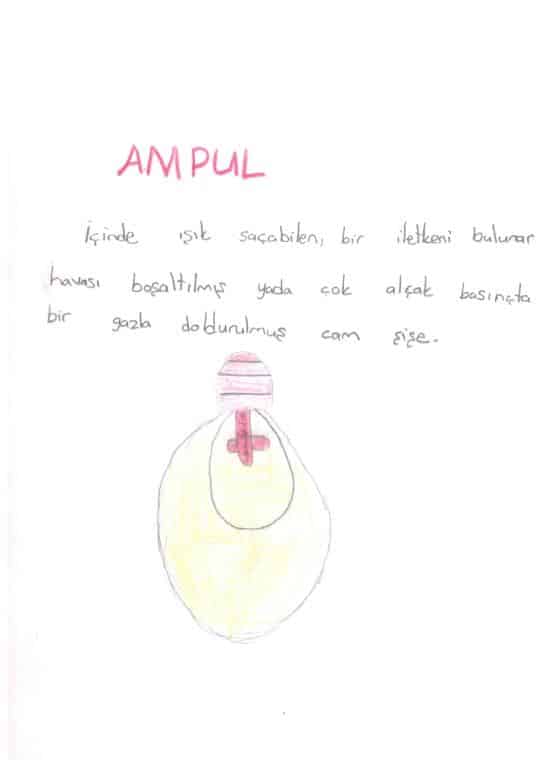 AMPUL
İçinde ışık saçabilen, bir iletkeni bulunan
havası boşaltılmış yada çok alçak basınçta
bir gazla doldurulmuş cam şişe.